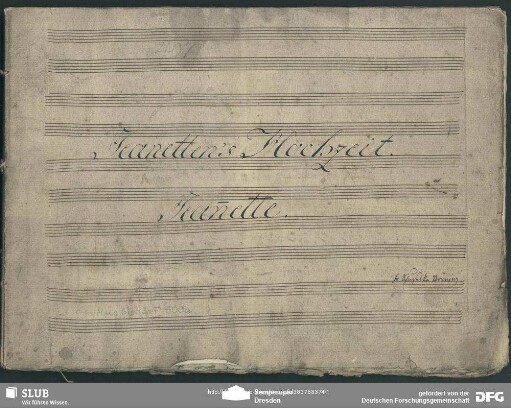 Jeanettens Hochzeit.
Jeanette.
SLUB
Wir führen Wissen.
http://
Semperoper
Dresden
gefördert von der
Deutschen Forschungsgemeinschaft
DFG